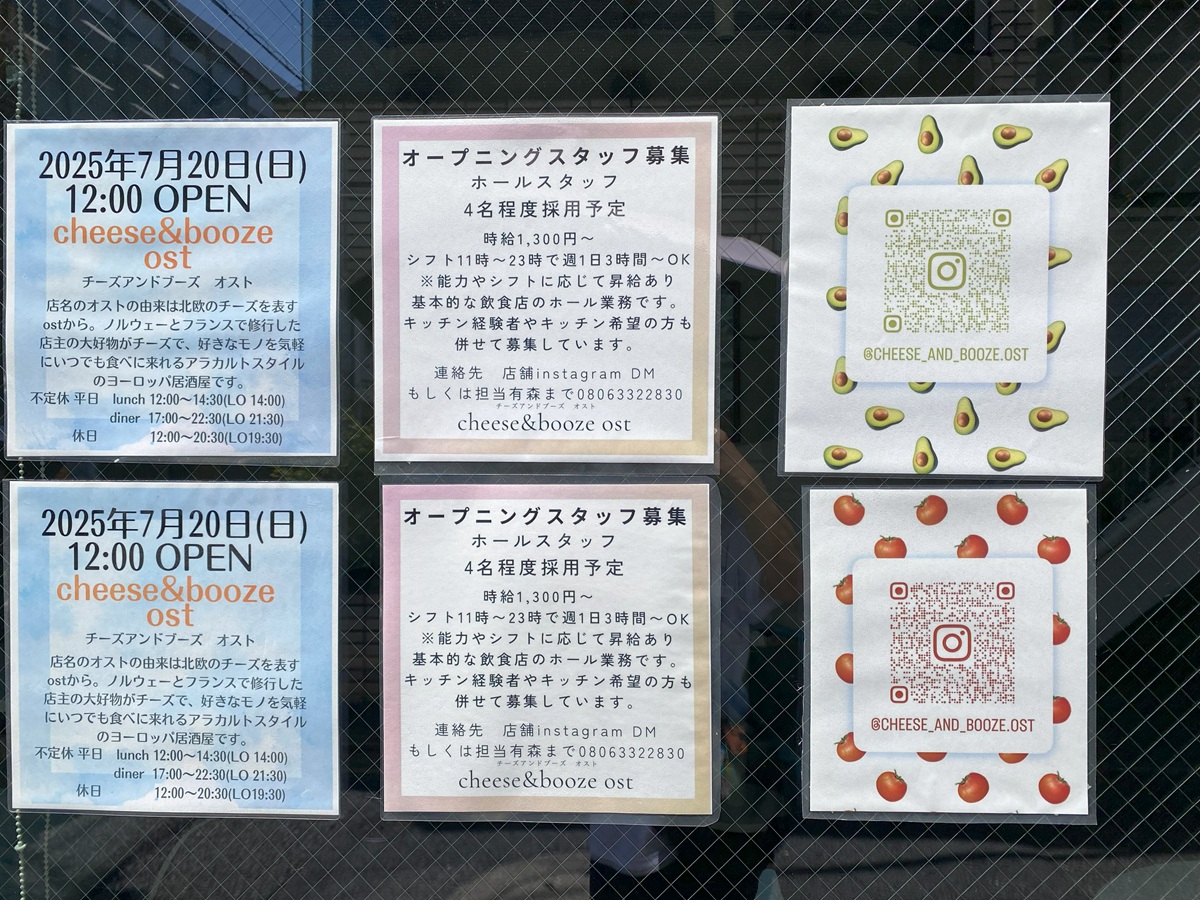 2025年7月20日(日)
12:00 OPEN
cheese&booze
ost
チーズアンドブーズ　オスト
店名のオストの由来は北欧のチーズを表す
ostから。ノルウェーとフランスで修行した
店主の大好物がチーズで、好きなモノを気軽
にいつでも食べに来れるアラカルトスタイル
のヨーロッパ居酒屋です。
不定休 平日　lunch 12:00〜14:30(LO 14:00)
diner 17:00〜22:30(LO 21:30)
休日　12:00〜20:30(LO19:30)
オープニングスタッフ募集
ホールスタッフ
4名程度採用予定
時給1,300円〜
シフト11時〜23時で週1日3時間〜OK
※能力やシフトに応じて昇給あり
基本的な飲食店のホール業務です。
キッチン経験者やキッチン希望の方も
併せて募集しています。
連絡先　店舗instagram DM
もしくは担当有森まで08063322830
チーズアンドブーズ　オスト
cheese&booze ost
@CHEESE_AND_BOOZE.OST
2025年7月20日(日)
12:00 OPEN
cheese&booze
ost
チーズアンドブーズ　オスト
店名のオストの由来は北欧のチーズを表す
ostから。ノルウェーとフランスで修行した
店主の大好物がチーズで、好きなモノを気軽
にいつでも食べに来れるアラカルトスタイル
のヨーロッパ居酒屋です。
不定休 平日　lunch 12:00〜14:30(LO 14:00)
diner 17:00〜22:30(LO 21:30)
休日　12:00〜20:30(LO19:30)
オープニングスタッフ募集
ホールスタッフ
4名程度採用予定
時給1,300円〜
シフト11時〜23時で週1日3時間〜OK
※能力やシフトに応じて昇給あり
基本的な飲食店のホール業務です。
キッチン経験者やキッチン希望の方も
併せて募集しています。
連絡先　店舗instagram DM
もしくは担当有森まで08063322830
チーズアンドブーズ　オスト
cheese&booze ost
@CHEESE_AND_BOOZE.OST